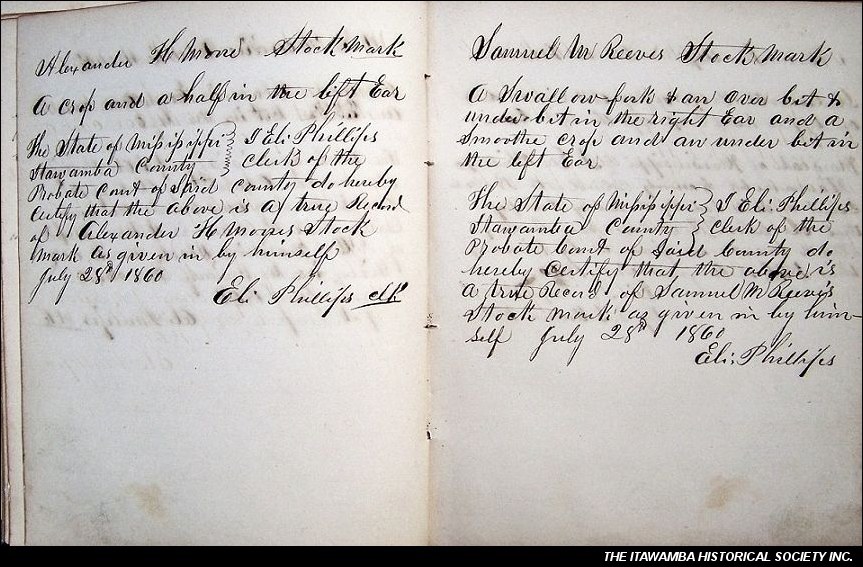 Alexander H Moore Stock Mark
A crop and a half in the left Ear
The State of Mississippi } I Eli Phillips
Itawamba County } clerk of the
Probate Court of Said County do hereby
Certify that the above is a true Record
of Alexander H Moores Stock
Mark as given in by himself
July 28th 1860
Eli Phillips clk
Samuel M Reeves Stock Mark
A Swallow-fork & an over bit &
under bit in the right Ear and a
Smoothe crop and an under bit in
the left Ear
The State of Mississippi } I Eli Phillips
Itawamba County } clerk of the
Probate Court of Said County do
hereby Certify that the above is
a true Record of Samuel M Reeves
Stock Mark as given in by him-
self July 28th 1860
Eli. Phillips
THE ITAWAMBA HISTORICAL SOCIETY INC.